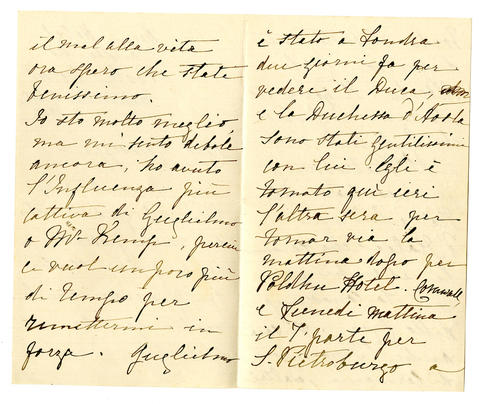 il mal alla vita
ora spero che state
benissimo.
Io sto molto meglio,
ma mi sento debole
ancora, ho avuto
l'Influenza più
cattiva di Guglielmo
o Mr Kemp, perciò
ci vuol un poco più
di tempo per
rimettermi in
forza. Guglielmo
è stato a Londra
due giorni fa per
vedere il Duca,
e la Duchessa d'Aosta
sono stati gentilissimi
con lui Egli è
tornato qui ieri
l'altra sera per
tornar via la
mattina dopo per
Poldhu Hotel. Cornwall
e Venerdi mattina
il 7 parte per
S. Pietroburgo a